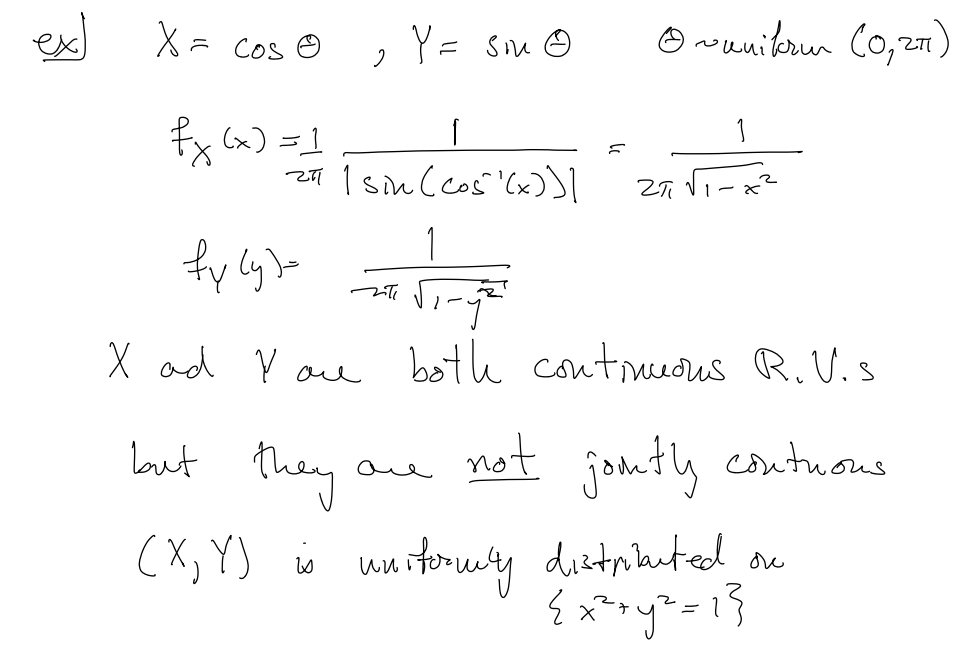 ex] X = cos Θ , Y = sin Θ Θ ~ uniform (0, 2π)
f_X(x) = 1/2π 1/|sin(cos⁻¹(x))| = 1/(2π √(1-x²))
f_Y(y) = 1/(2π √(1-y²))
X ad Y are both continuous R.V.s
but they are not jointly contnuous
(X, Y) is uniformly distributed on
{x²+y²=1}